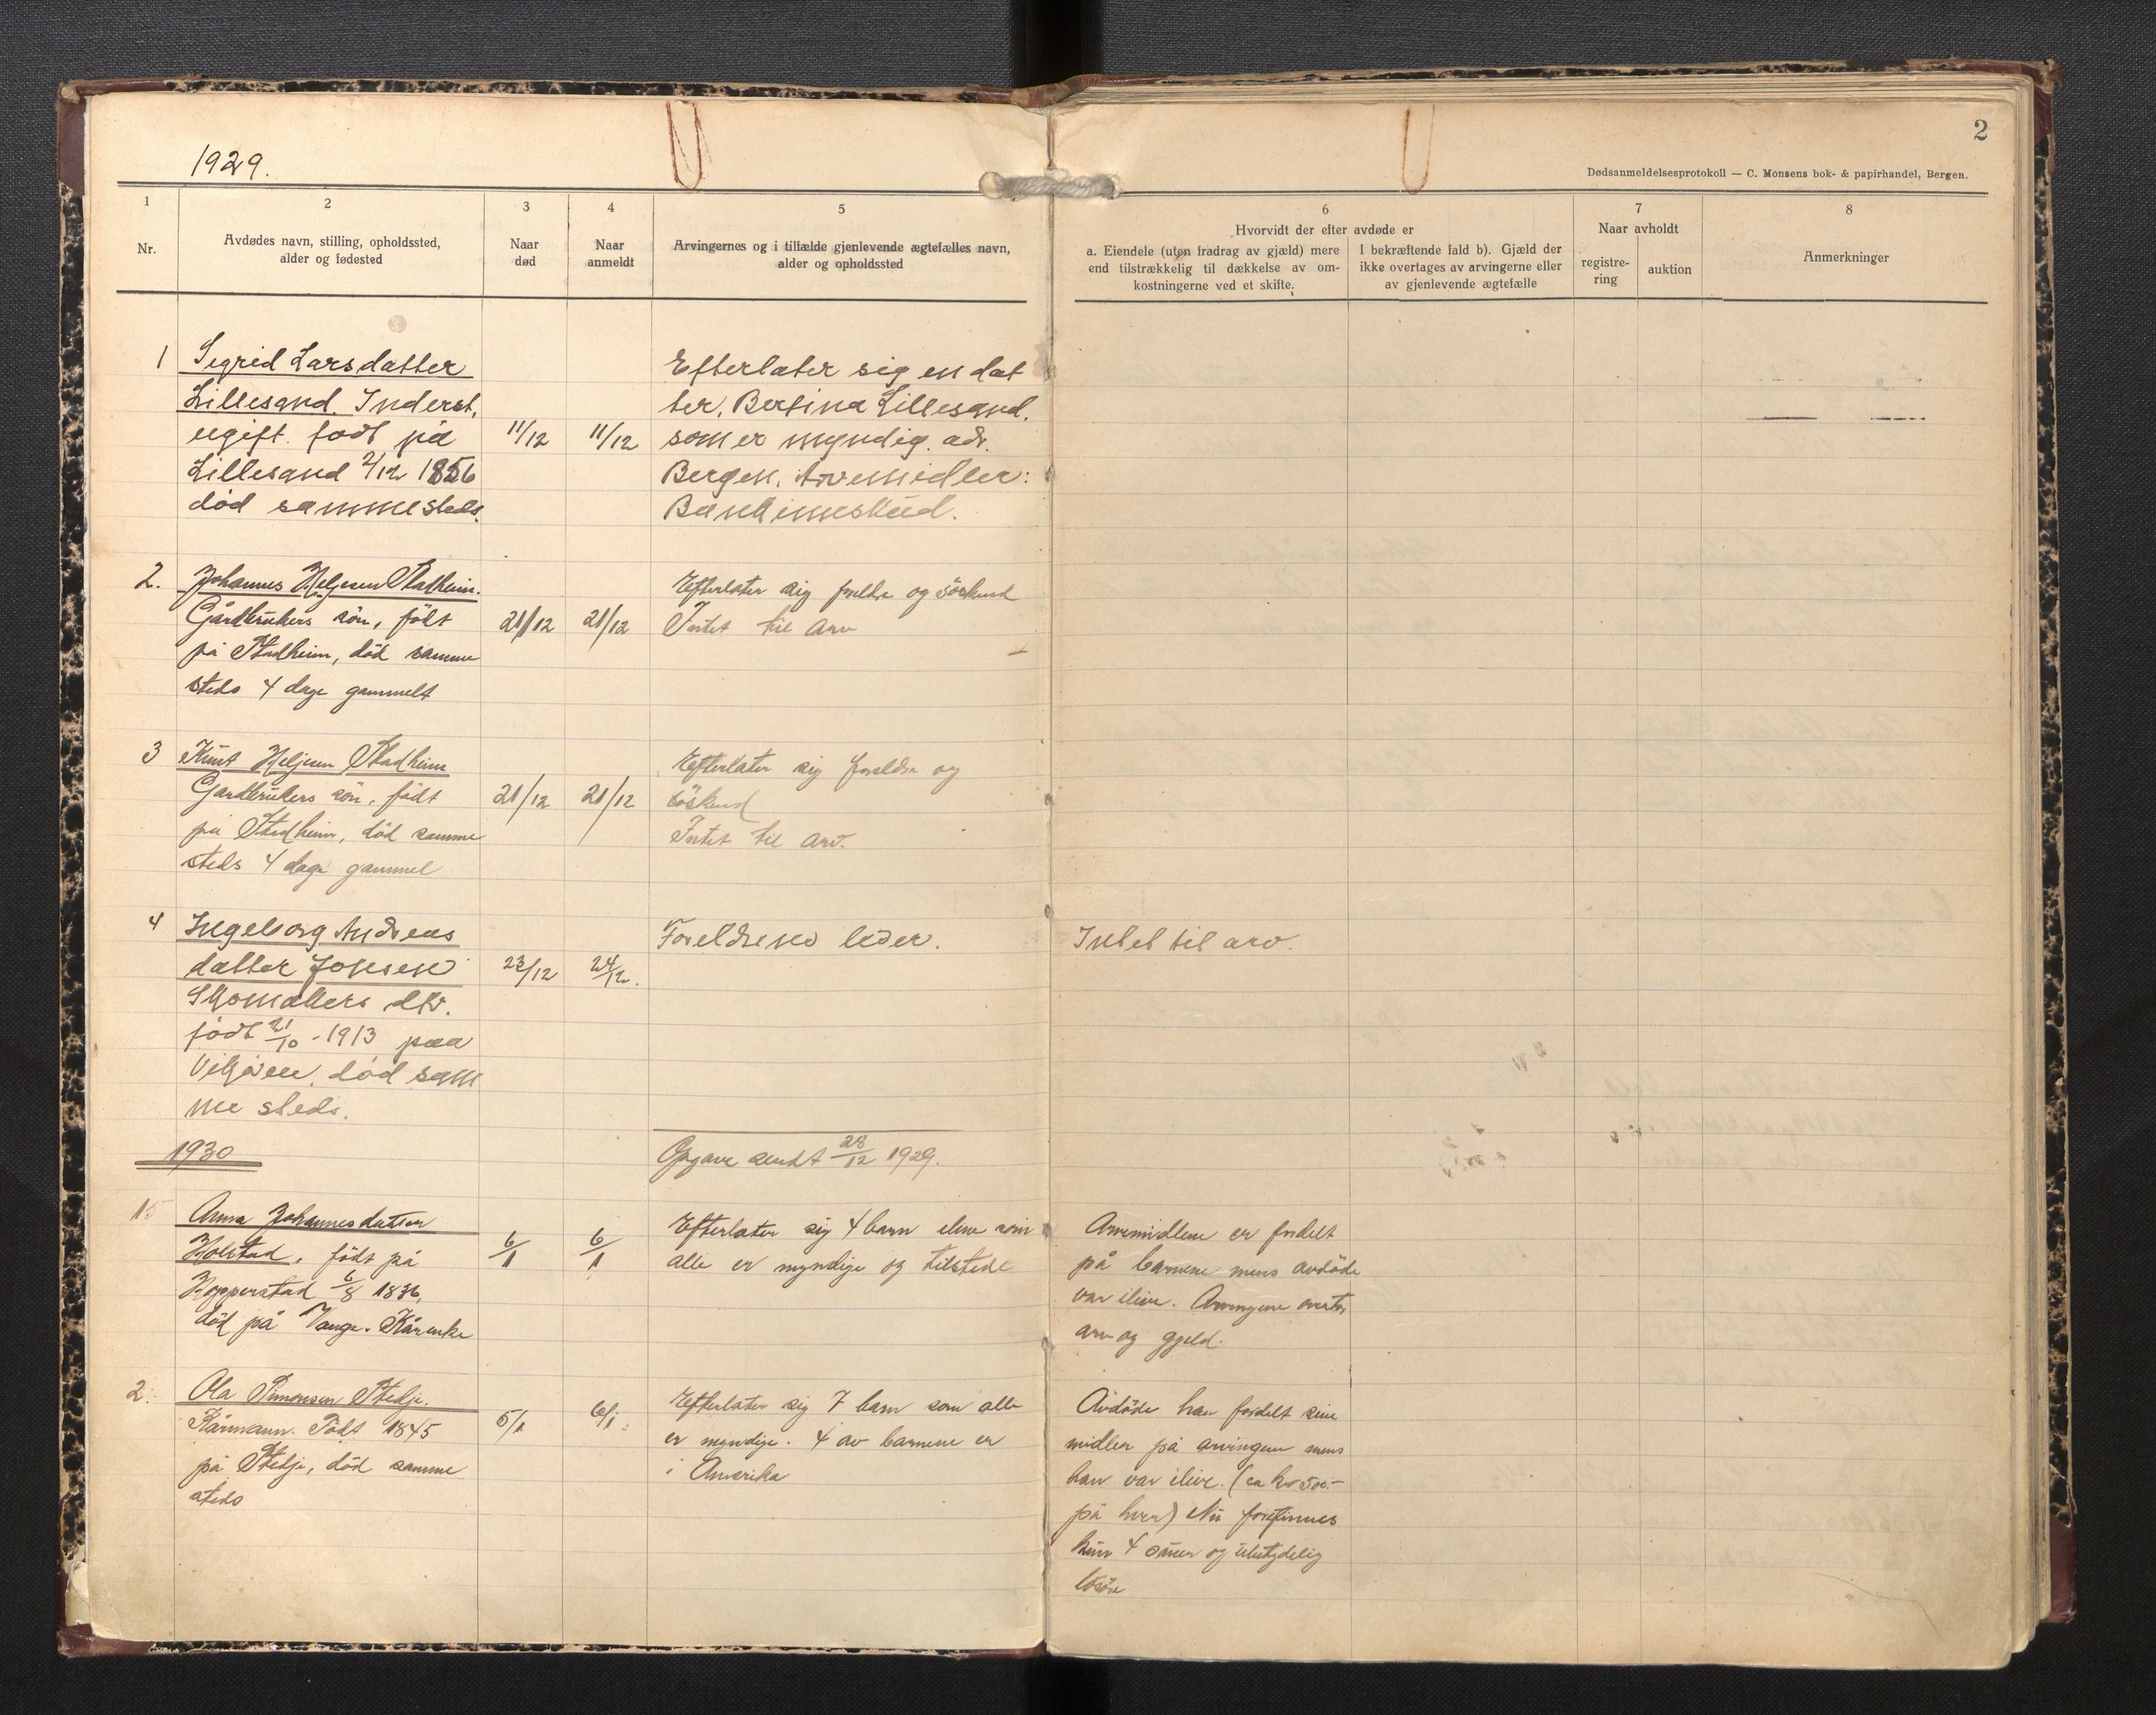 1929.
2
Dødsanmeldelsesprotokoll — C. Monsens bok- & papirhandel, Bergen.
1
Nr.
2
Avdødes navn, stilling, opholdssted,
alder og fødested
3
Naar
død
4
Naar
anmeldt
5
Arvingernes og i tilfælde gjenlevende ægtefælles navn,
alder og opholdssted
6
Hvorvidt der efter avdøde er
a. Eiendele (uten fradrag av gjæld) mere
end tilstrækkelig til dækkelse av om-
kostningerne ved et skifte.
I bekræftende fald b). Gjæld der
ikke overtages av arvingerne eller
av gjenlevende ægtefælle
7
Naar avholdt
registre-
ring
auktion
8
Anmerkninger
1
Sigrid Larsdatter
Lillesand. Inderst,
ugift. født på
Lillesand 2/12 1856
død sammesteds.
11/12
11/12
Efterlater sig en dat
ter, Bertina Lillesand.
som er myndig. adr.
Bergen. Arvemidler:
Bankinnskud.
2.
Johannes Heljesen Stadheim.
Gårdbrukers sön, födt
på Stadheim, död samme
steds 4 dage gammelt
21/12
21/12
Efterlater sig foreldre og söskend
Intet til arv
3
Knut Heljesen Stadheim
Gardbrukers sön, födt
på Stadheim, död samme
steds 4 dage gammel
21/12
21/12
Efterlater sig foreldre og
söskend
Intet til arv.
4
Ingeborg Andreas
datter Jonsen
Skomakers dtr.
født 21/10 - 1913 paa
Vikøren, død sam
me steds.
23/12
24/12.
Foreldrene lever.
Intet til arv.
1930
Opgave sendt 28/12 1929.
1
Anna Johannesdatter
Holstad, födt på
Hopperstad 6/8 1836,
död på Vange. Kårenke
6/1
6/1
Efterlater sig 4 barn som
alle er myndige og tilstede
Arvemidlene er fordelt
på barnene mens avdöde
var ilive. Arvingene overtar
arv og gjeld.
2.
Ola Simonsen Stedje.
Kårmann. Födt 1845
på Stedje, död samme
steds
5/1
6/1
Efterlater sig 7 barn som alle
er myndige. 4 av barnene er
i Amerika
Avdöde har fordelt sine
midler på arvingene mens
han var ilive. (ca kr 500.-
på hver) Nu forefinnes
kun 4 sauer og ubetydelig
lösöre